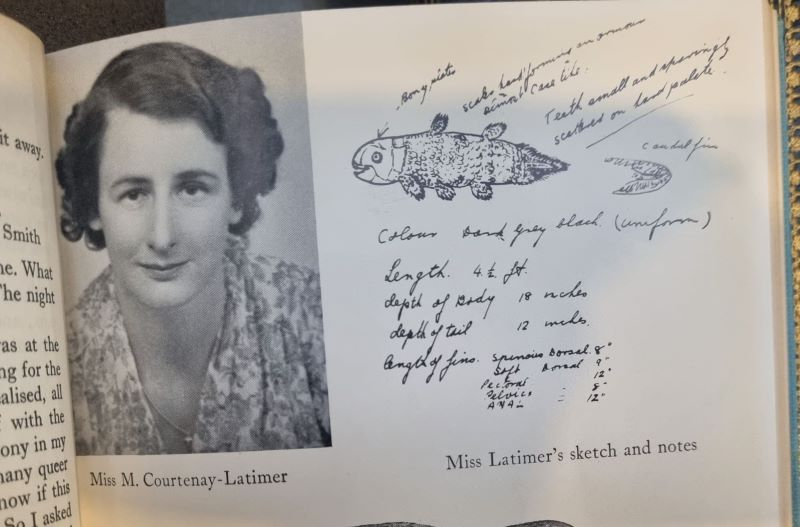 it away.
Smith
ne. What
The night
vas at the
ng for the
ealised, all
f with the
ony in my
many queer
now if this
So I asked
Miss M. Courtenay-Latimer
Bony plates
scales hard forming an armour
almost case like.
Teeth small and sparingly
scattered on hard palate.
Caudal fin
Colour Dark grey black. (uniform)
Length. 4½ ft.
depth of Body 18 inches
depth of tail 12 inches.
length of fins. Spinous Dorsal. 8"
Soft Dorsal 9"
Pectoral 12"
Pelvics - 8"
ANAL = 12"
Miss Latimer's sketch and notes